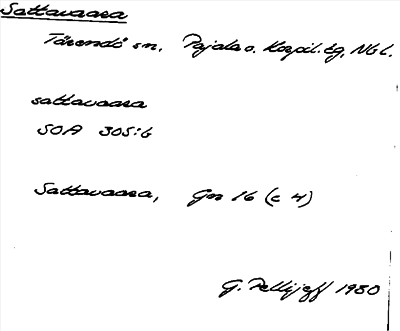 Sattavaara
Tärendö sn, Pajala o. Korpil. tg, Nbl.
sattavaara
SOA 305:6
Sattavaara, Gn 16 (c 4)
G. Pellijeff 1980